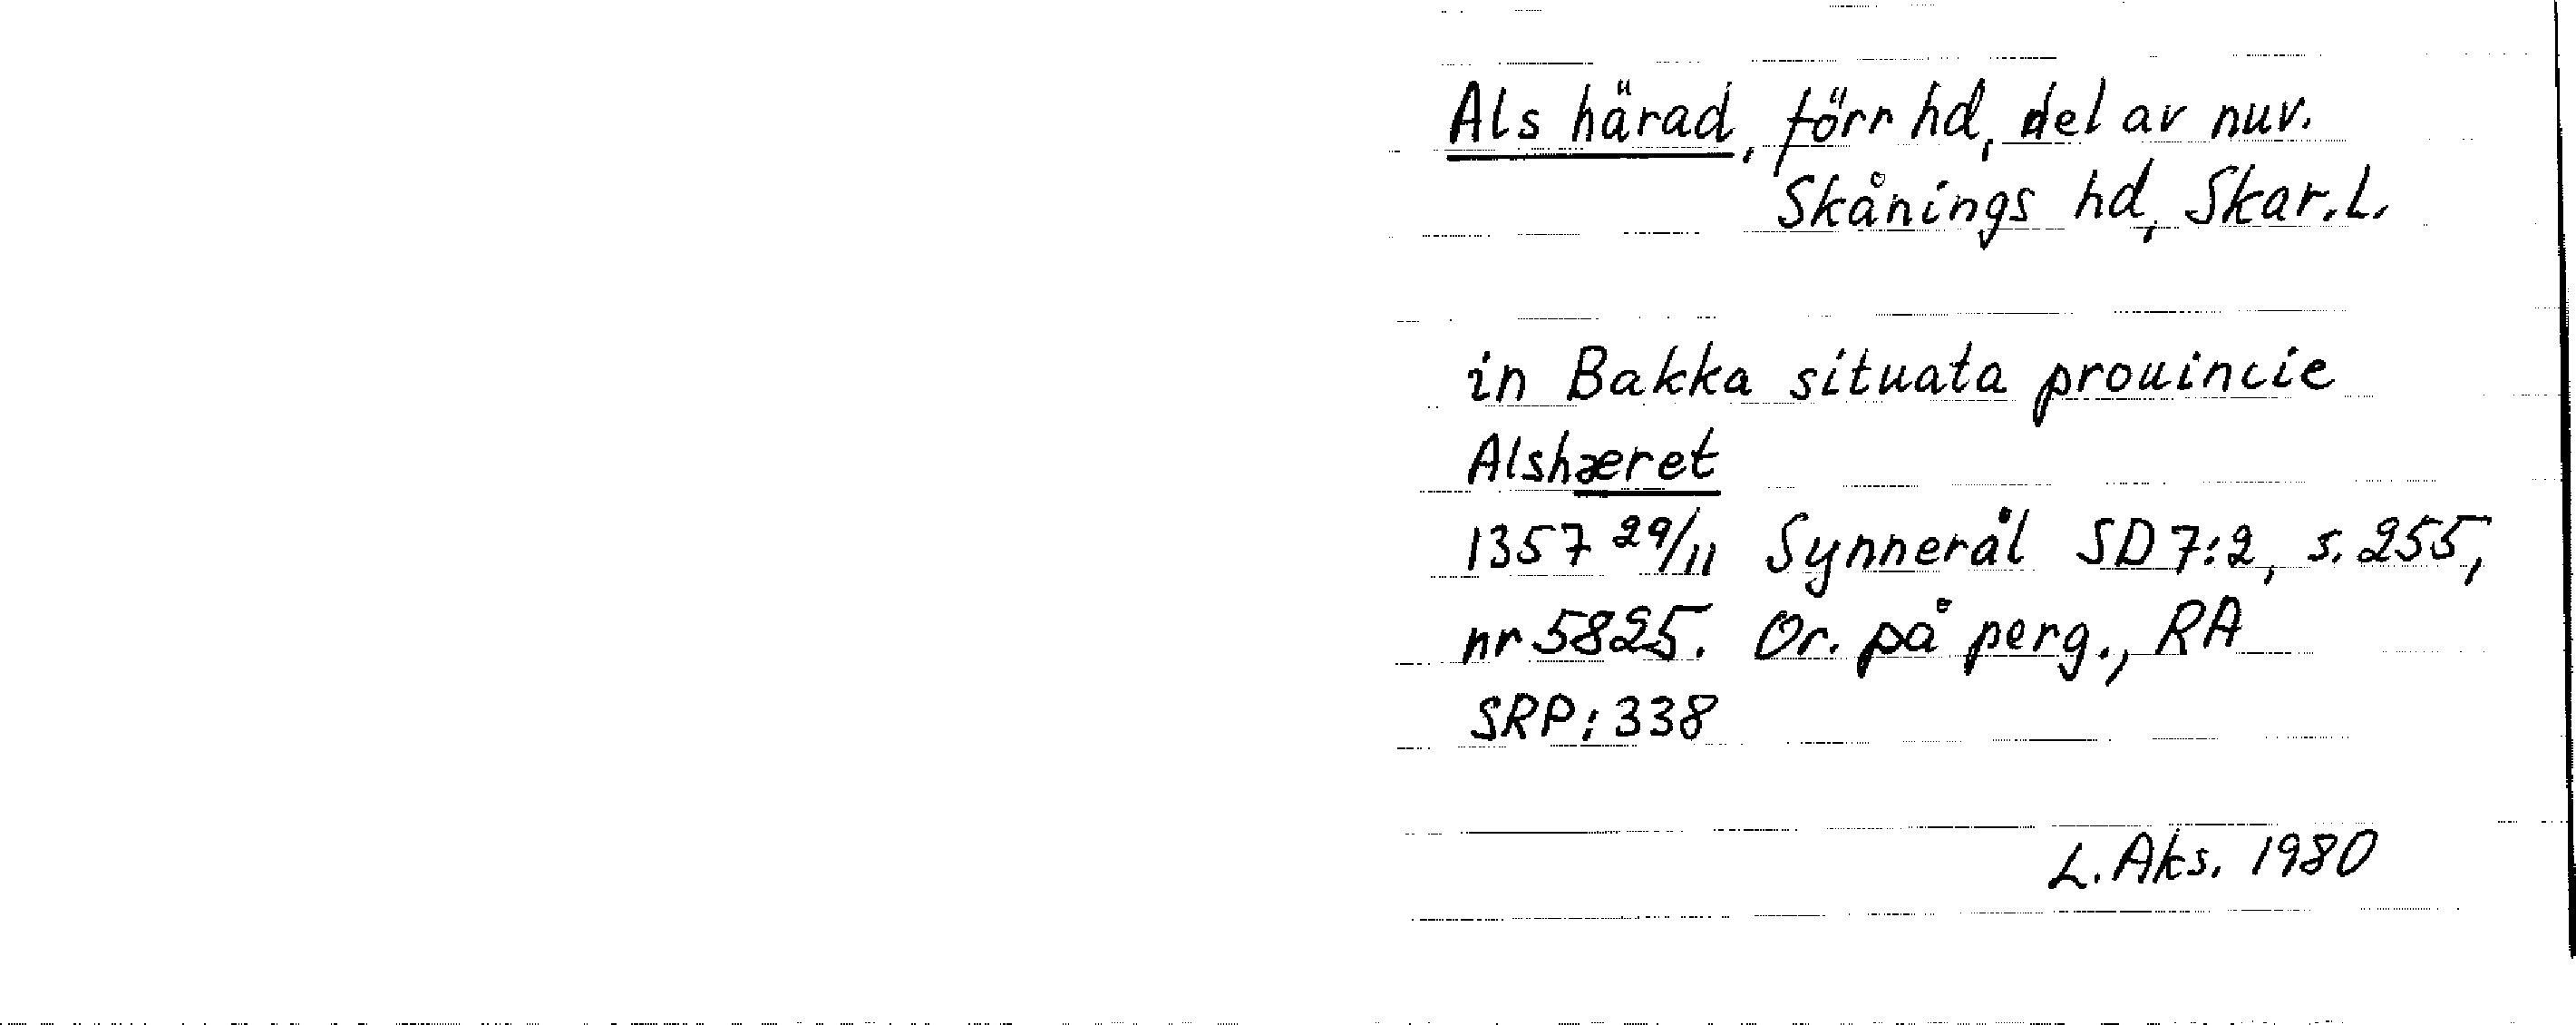 Als härad, förr hd, del av nuv.
Skånings hd, Skar.L.
in Bakka situata prouincie
Alshæret
1357 29/11 Synnerål SD 7:2, s. 255,
nr 5825. Or. på perg., RA
SRP: 338
L. Aks. 1980